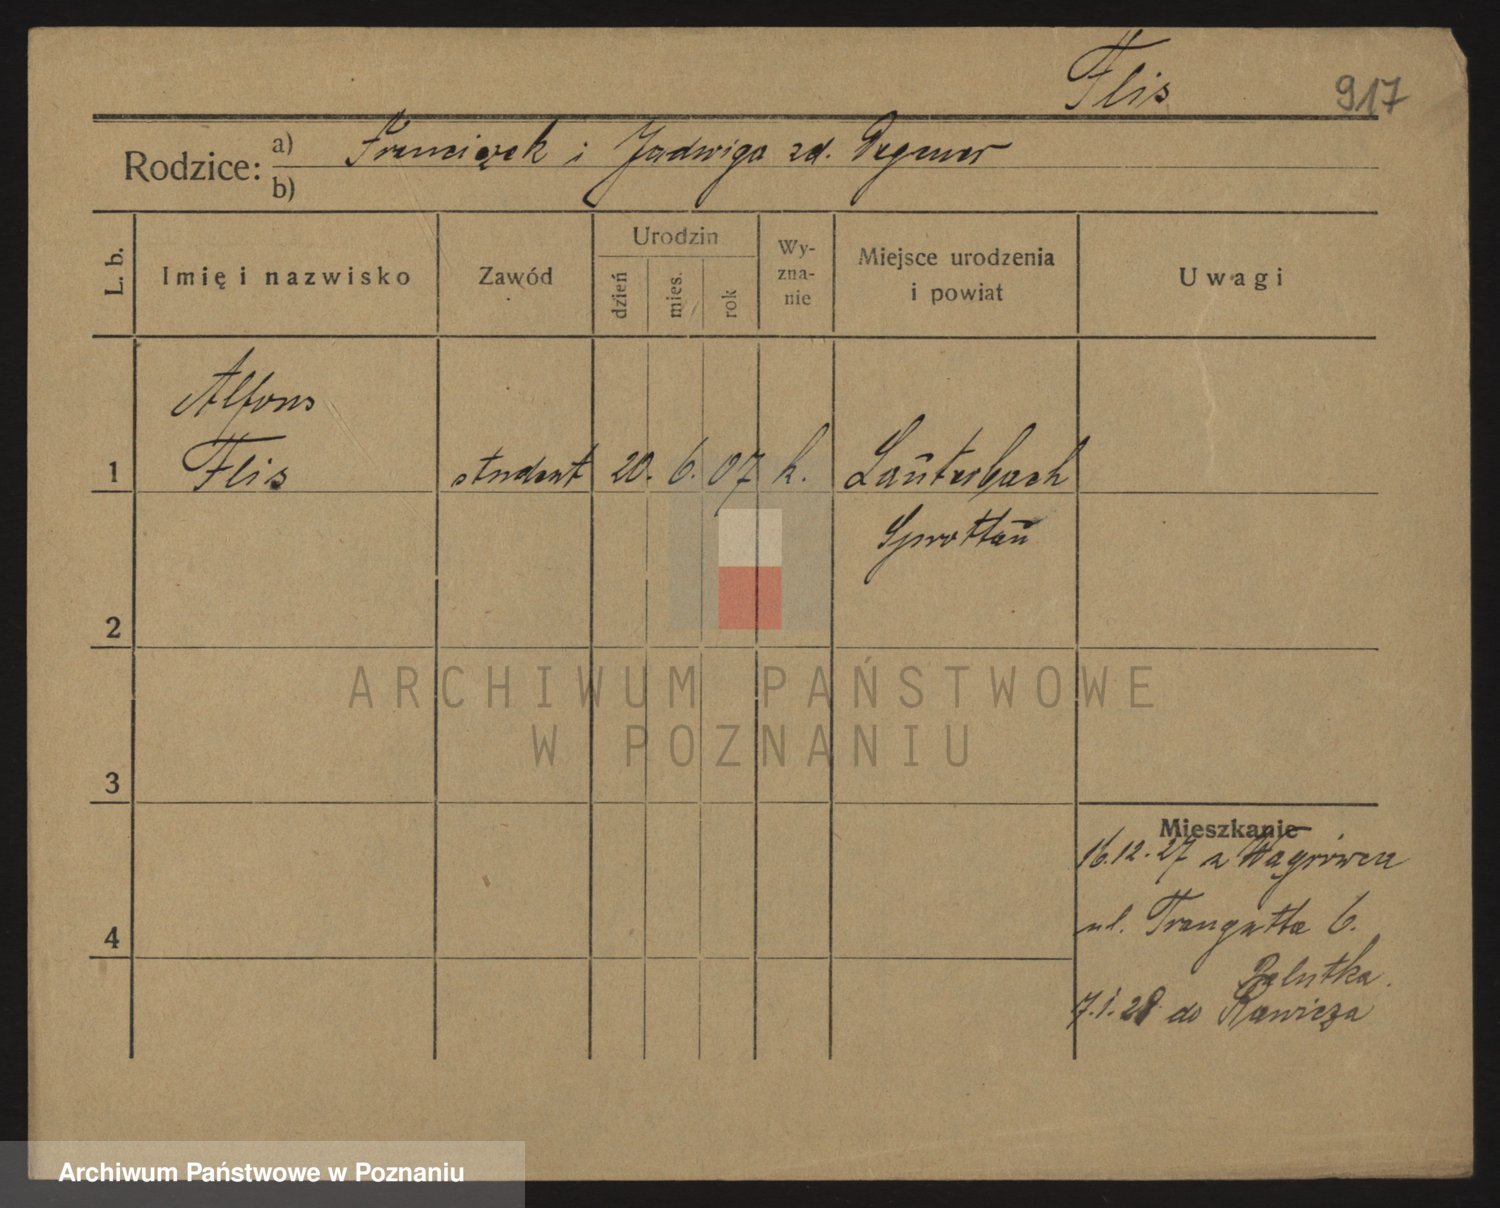 Flis
917
Rodzice: a) Franciszek i Jadwiga zd. Degener
b)
L. b.
Imię i nazwisko
Zawód
Urodzin
dzień
mies.
rok
Wy-
zna-
nie
Miejsce urodzenia
i powiat
Uwagi
Alfons
1 Flis student 20. 6. 07 k. Lauterbach
Sprottau
2
ARCHIWUM PAŃSTWOWE
W POZNANIU
3
Mieszkanie
16.12.27 z Wągrówca
4 ul. Traugutta 6.
7.1.28 do Rawicza
Archiwum Państwowe w Poznaniu